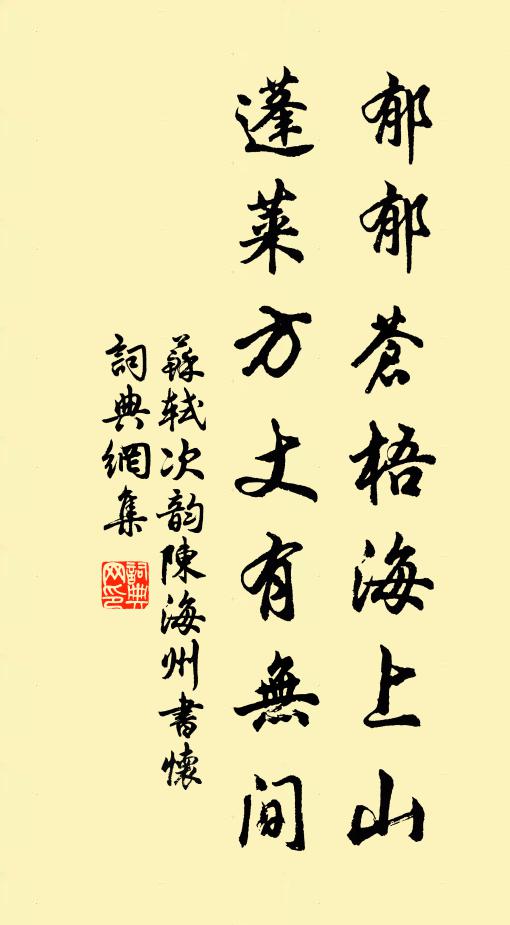 郁郁蒼梧海上山
蓬萊方丈有無间
蘇轼次韵陳海州書懷
詞典網集
詞典网印